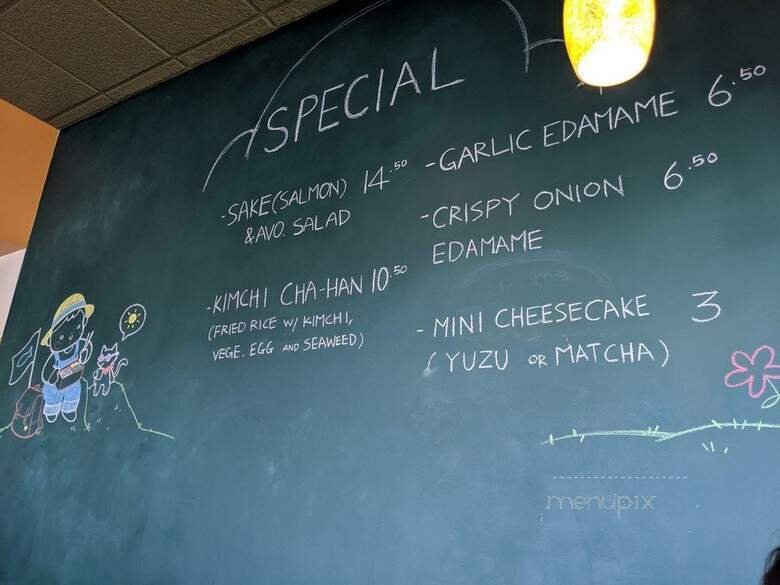 SPECIAL
-SAKE(SALMON) 14.50
& AVO. SALAD
-KIMCHI CHA-HAN 10.50
(FRIED RICE W/ KIMCHI,
VEGE. EGG AND SEAWEED)
-GARLIC EDAMAME 6.50
-CRISPY ONION 6.50
EDAMAME
- MINI CHEESECAKE 3
(YUZU OR MATCHA)
menupix